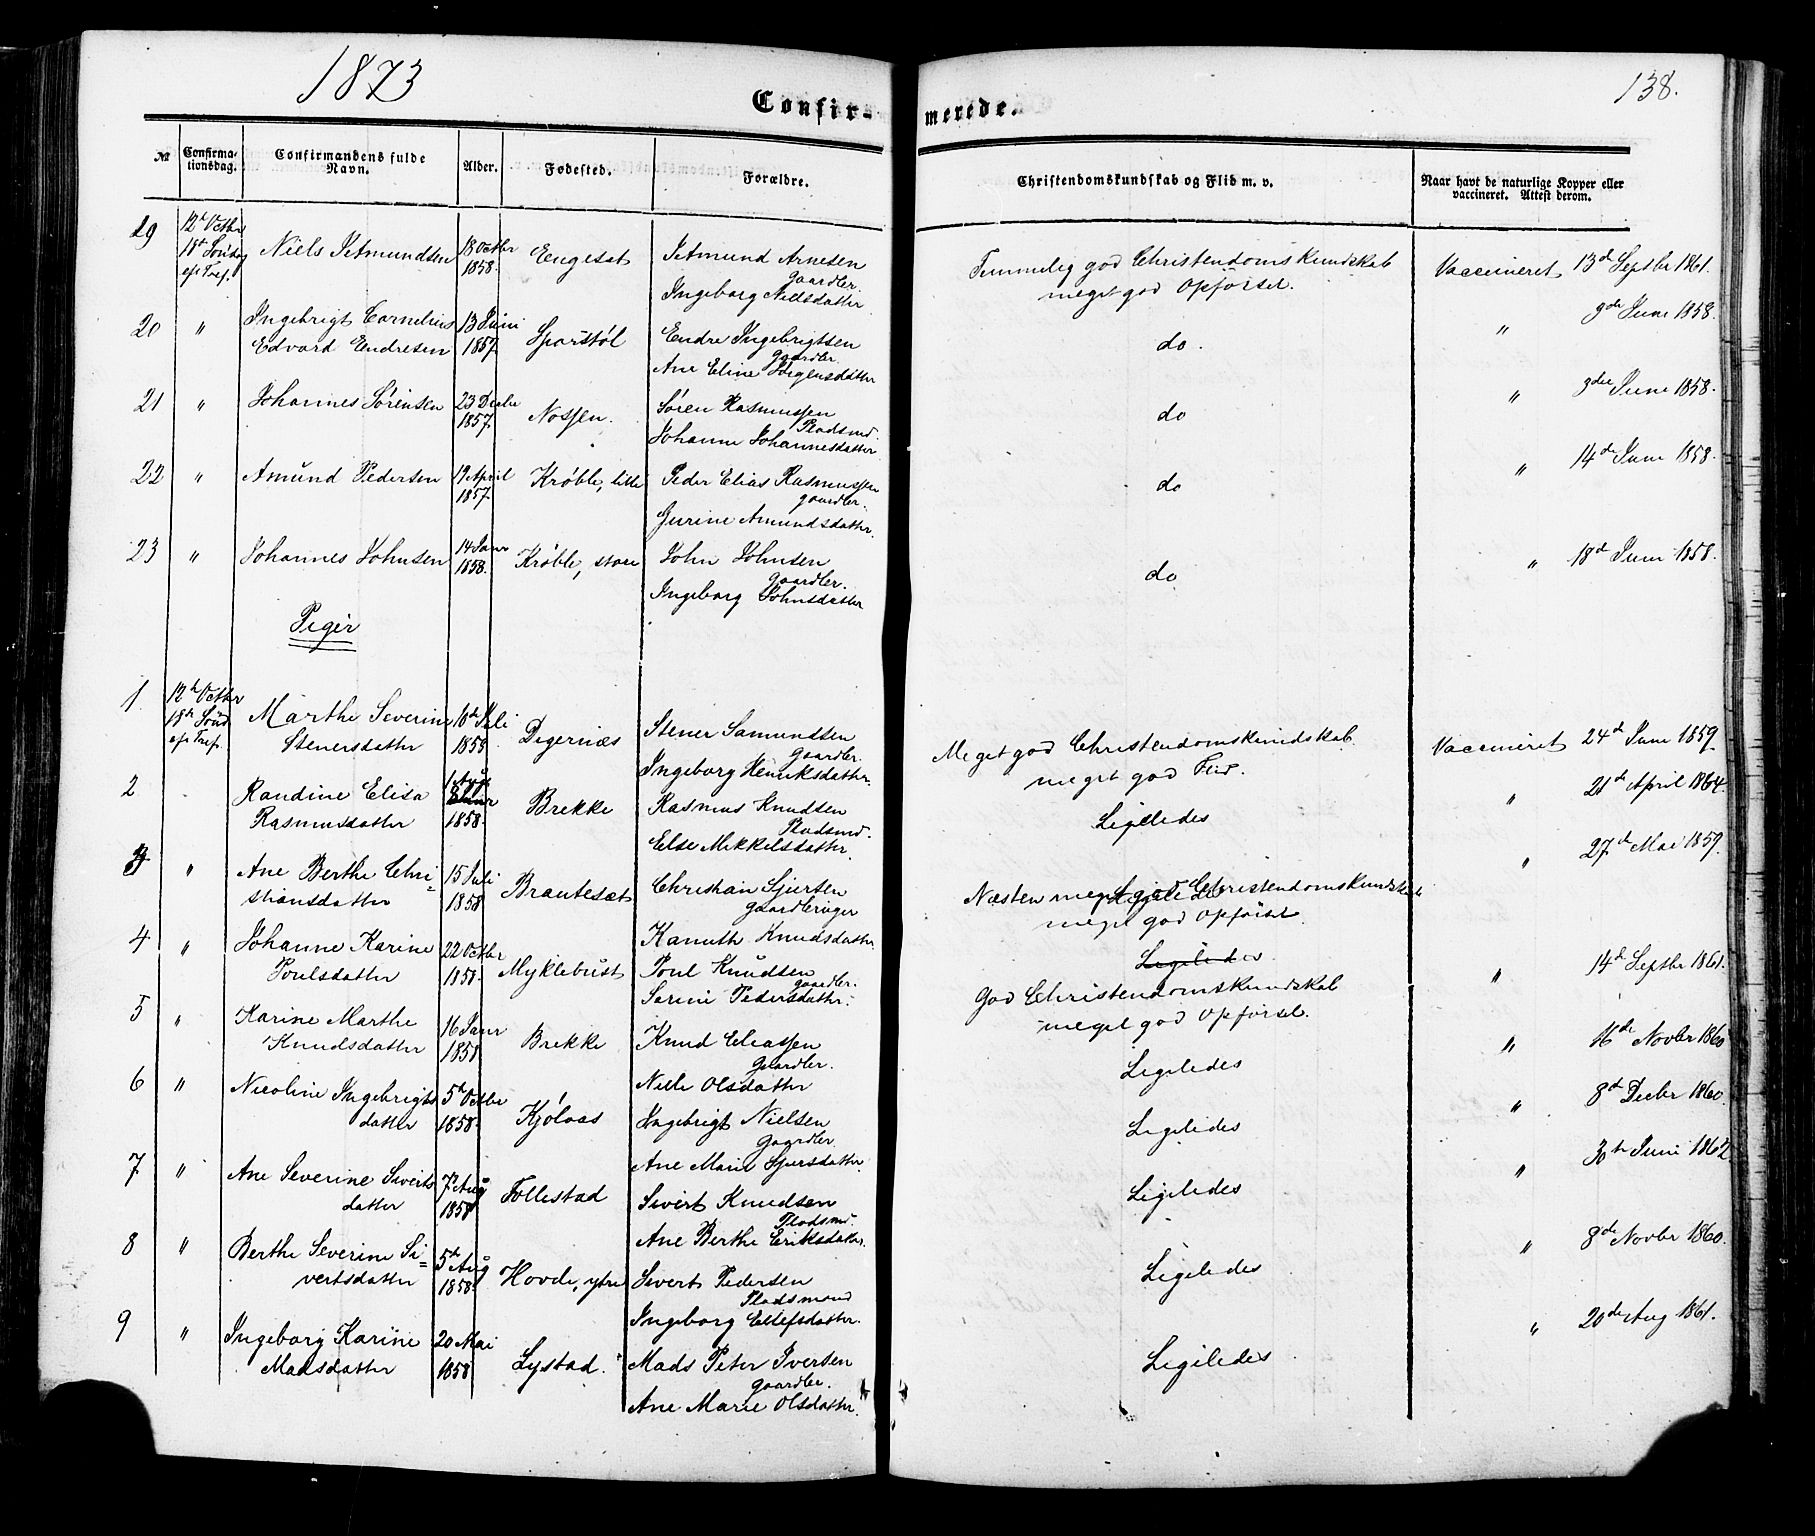 1873
138.
Confir-
merede.
№
Confirma-
tionsdag.
Confirmandens fulde
Navn.
Alder.
Fødested.
Forældre.
Christendomskundskab og Flid m. v.
Naar havt de naturlige Kopper eller
vaccineret. Attest derom.
19 12te Octbr 18de Søndag ef. Tref. Niels Petmundsen 13 Octbr 1858. Engeset Petmund Arnesen Gaardbr. Ingeborg Nielsdatter Temmelig god Christendomskundskab meget god Opførsel. Vaccineret 13de Septbr 1861.
20 " Ingebrigt Cornelius Edvard Endresen 13 Juni 1857. Sporstøl Endre Ingebrigtsen Gaardbr. Ane Eline Jørgensdatter do. " 9de Juni 1858.
21 " Johannes Sørensen 23 Decbr 1857. Nossen. Søren Rasmussen Pladsmd. Johanne Johannesdatter do " 3die Juni 1858.
22 " Amund Pedersen 19 April 1857. Krøble, lille Peder Elias Rasmussen gaardbr. Gurine Amundsdatter. do " 14de Juni 1858.
23 " Johannes Johnsen 14 Janr 1858. Krøble, store John Johnsen gaardbr. Ingeborg Johnsdatter do " 18de Juni 1858.
Piger
1 12te Octbr 18de Sønd. ef. Tref. Marthe Severine Stenersdatter 10de Juli 1858 Digernæs Stener Samundsen Gaardbr. Ingeborg Henriksdatter Meget god Christendomskundskab meget god Flid. Vaccineret 24de Juni 1859
2 Randine Elisa Rasmusdatter 1 Aug 1858. Brekke Rasmus Knudsen Pladsmd. Else Mikkelsdatter. Ligeledes " 21de April 1864.
3 " Ane Berthe Christiansdatter 15 Juli 1858 Brautesæt Christian Sjursen gaardbruger Kanuth Knudsdatter Næsten meget god Christendomskundskab meget god Opførsel. " 27de Mai 1859.
4 " Johanne Karine Poulsdatter 22 Octbr 1858. Myklebust Poul Knudsen gaardbr. Serine Pedersdatter. Ligeledes God Christendomskundskab meget god Opførsel. " 14de Septbr 1861.
5 " Karine Marthe Knudsdatter 16 Janr 1858 Brekke Knud Eliassen Gaardbr. Nille Olsdatter Ligeledes " 16de Novbr 1860
6 " Nicoline Ingebrigtsdatter 5te Octbr 1858. Kjølaas Ingebrigt Nielsen Gaardbr. Ane Marie Sjursdatter Ligeledes " 8de Decbr 1860.
7 " Ane Severine Sivertsdatter 7de Aug 1858 Follestad Sivert Knudsen Pladsmd. Ane Berthe Eriksdatter. Ligeledes " 30te Juni 1862.
8 " Berthe Severine Sivertsdatter 5te Aug 1858 Hovde, ytre Sivert Pedersen Pladsmand Ingeborg Ellefsdatter. Ligeledes " 8de Novbr 1860.
9 " Ingeborg Karine Madsdatter 20 Mai 1858 Lystad. Mads Peter Iversen gaardbr. Ane Marie Olsdatter. Ligeledes " 20de Aug 1861.